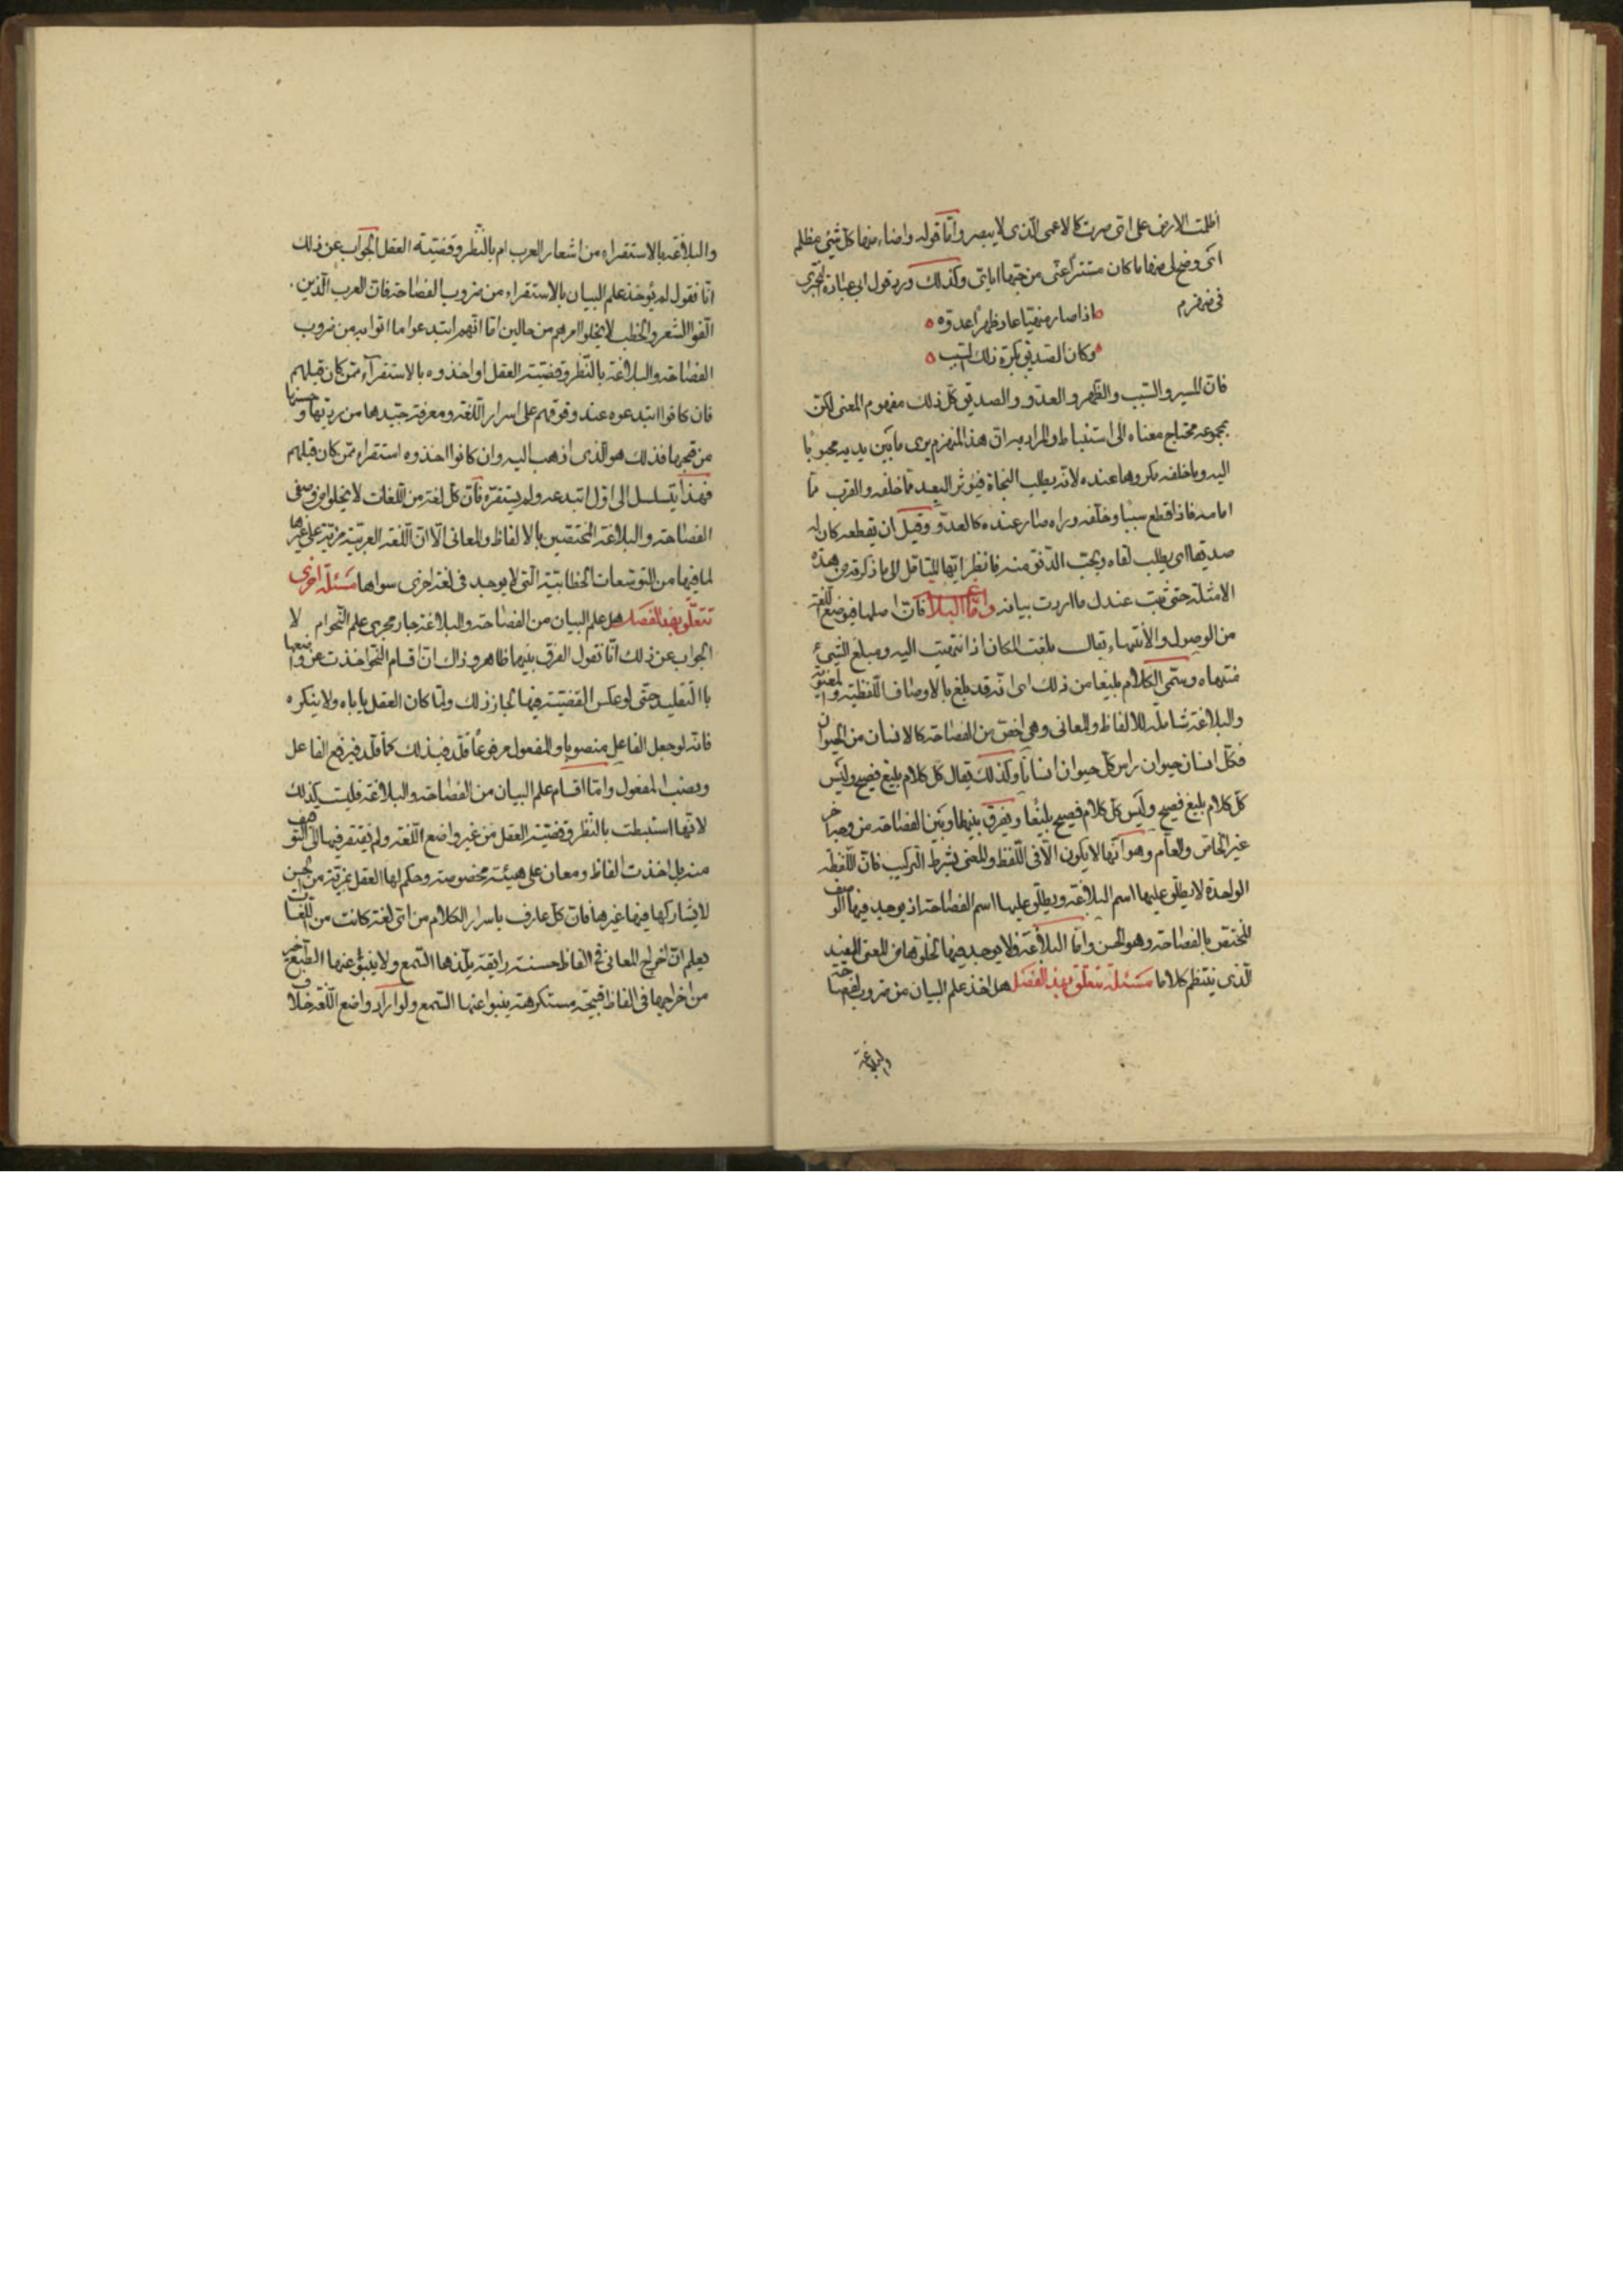 أظلمت الارض على اى صرت كالاعمى الذى لا يبصر وامّا قوله واضاء منها كلّ شئ مظلم
اى وضح لى منها ما كان مستترًا عنّى من حبّها اياى وكذلك ورد قول ابى عبادة البحترى
فى منهزم
اذا صار منهيا عاد ظهرًا عدوّه
وكان الصديق بكرة ذلك السبب
فانّ المسير والسبب والظهر والعدوّ والصديق كلّ ذلك مفهوم المعنى لكن
مجموعه محتاج معناه الى استنباط والمراد به انّ هذا المنهزم يرى ما بين يديه محبوبًا
اليه وما خلفه مكروها عنده لانه يطلب النجاة فيؤثر البعد مما خلفه والقرب ممّا
امامه فاذا قطع سببًا وخلفه وراه صار عنده كالعدوّ وقبل ان يقطعه كان له
صديقا اى يطلب لقاه ويحب الدنوّ منه فانظر ايّها المتامّل الى ما ذكرته من هذه
الامثلة حتى يثبت عندك ما اردت بيانه وامّا البلاغة فانّ اصلها فى وضع اللغة
من الوصول والانتهاء يقال بلغت المكان اذا انتهيت اليه ومبلغ الشئ
منتهاه وسمّى الكلام بليغا من ذلك اى انّه قد بلغ بالاوصاف اللفظيّة والمعنويّة
والبلاغة شاملة للالفاظ والمعانى وهى اخصّ من الفصاحة كالانسان من الحيوان
فكلّ انسان حيوان وليس كلّ حيوان انسانًا وكذلك يقال كلّ كلام بليغ فصيح وليس
كلّ كلام بليغ فصيح وليس كلّ كلام فصيح بليغًا ويفرق بينها وبين الفصاحة من وجه آخر
غير الخاصّ والعام وهو انّها لا يكون الّا فى اللّفظ والمعنى بشرط التركيب فانّ اللّفظة
الواحدة لا يطلق عليها اسم البلاغة ويطلق عليها اسم الفصاحة اذ يوجد فيها الوصف
المختصّ بالفصاحة وهو الحسن وامّا البلاغة فلا يوجد فيها لخلوّها من المعنى المفيد
الّذى ينتظم كلاما مسئلة تتعلّق بهذا الفصل هل اخذ علم البيان من ضروب الفصاحة
والبلاغة
والبلاغة بالاستقراء من اشعار العرب ام بالنّظر وقضيّة العقل الجواب عن ذلك
انّا نقول لم يؤخذ علم البيان بالاستقراء من ضروب الفصاحة فانّ العرب الّذين
الّفوا الشعر والخطب لا يخلوا امرهم من حالين امّا انّهم ابتدعوا ما اتوا به من ضروب
الفصاحة والبلاغة بالنّظر وقضيّة العقل او اخذوه بالاستقرآء ممّن كان قبلهم
فان كانوا ابتدعوه عند وقوفهم على اسرار اللّغة ومعرفة جيّدها من رديّها وحسنها
من قبحها فذلك هو الّذى اذهب اليه وان كانوا اخذوه استقراء ممّن كان قبلهم
فهذا يتسلسل الى اوّل ابتدعه ولم يستقره فانّ كلّ لغة من اللّغات لا يخلوا من وصفى
الفصاحة والبلاغة المختصّين بالالفاظ والمعانى الّا انّ اللّغة العربيّة مزيّة على غيرها
لما فيها من التوسّعات الخطابيّة الّتى لا يوجد فى لغة اخرى سواها مسئلة اخرى
تتعلّق بهذا الفصل هل علم البيان من الفصاحة والبلاغة جار مجرى علم النّحو ام لا
الجواب عن ذلك انّا نقول الفرق بينهما ظاهر وذاك انّ اقسام النّحو اخذت عن واضعها
باالتقليد حتى لو عكس القضيّة فيها لجاز ذلك ولما كان العقل ياباه ولا ينكره
فانّه لو جعل الفاعل منصوبا والمفعول مرفوعًا قلّد فى ذلك كما قلّد فى رفع الفاعل
ونصب المفعول وامّا اقسام علم البيان من الفصاحة والبلاغة فليست كذلك
لانّها استنبطت بالنّظر وقضيّة العقل من غير واضع اللّغة ولم يفتقر فيها الى التّوقيف
منه بل اخذت الفاظ ومعان على هيئة مخصوصة وحكم لها العقل بمزيّة من الحسن
لا يشاركها فيها غيرها فانّ كلّ عارف باسرار الكلام من اى لغة كانت من اللّغات
يعلم انّ اخراج المعانى فى الفاظ حسنة رايقة يلذّها السّمع ولا ينبؤ عنها الطّبع خير
من اخراجها فى الفاظ قبيحة مستكرهة ينبوا عنها السّمع ولو اراد واضع اللّغة خلاف